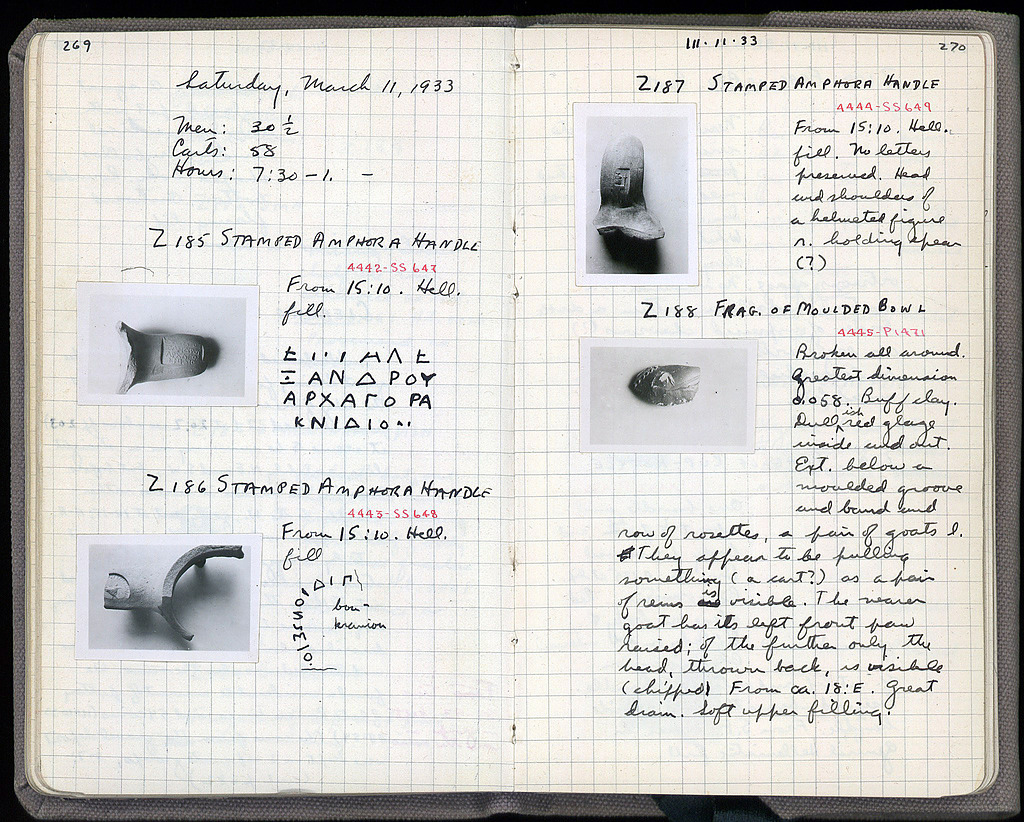 269
Saturday, March 11, 1933
Men: 30 ½
Carts: 58
Hours: 7:30 – 1. –
Z 185 STAMPED AMPHORA HANDLE
4442-SS 647
From 15:10. Hell.
fill.
Ε Ι ΑΛΕ
ΞΑΝΔΡΟΥ
ΑΡΧΑΓΟΡΑ
ΚΝΙΔΙΟ..
Z 186 STAMPED AMPHORA HANDLE
4443-SS 648
From 15:10. Hell.
fill
ΔΙΠ
bou-
kranion
III·11·33
270
Z187 STAMPED AMPHORA HANDLE
4444-SS 649
From 15:10. Hell.
fill. No letters
preserved. Head
and shoulders of
a helmeted figure
r. holding spear
(?)
Z 188 FRAG. OF MOULDED BOWL
4445-P1471
Broken all around.
Greatest dimension
0.058. Buff clay.
Dullish red glaze
inside and out.
Ext. below a
moulded groove
and band and
row of rosettes, a pair of goats l.
They appear to be pulling
something (a cart?) as a pair
of reins is visible. The nearer
goat has its left front paw
raised; of the further only the
head, thrown back, is visible
(chipped) From ca. 18:E. Great
drain. Soft upper filling.